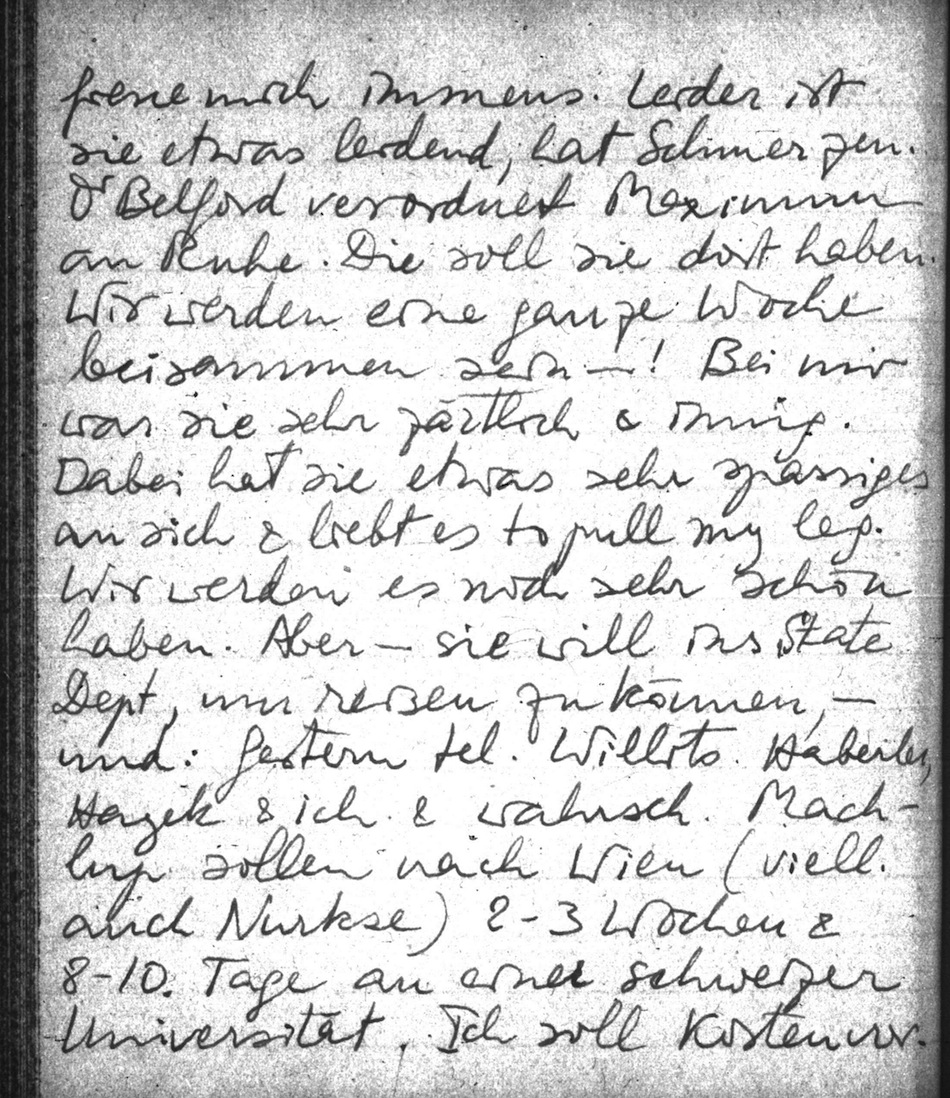 freue mich immens. Leider ist
sie etwas leidend, hat Schmerzen.
Dr Belford verordnet Maximum
an Ruhe. Die soll sie dort haben.
Wir werden eine ganze Woche
beisammen sein —! Bei mir
war sie sehr zärtlich & innig.
Dabei hat sie etwas sehr spassiges
an sich & liebt es to pull my leg.
Wir werden es noch sehr schön
haben. Aber — sie will ins State
Dept, um reisen zu können, —
und: Gestern tel. Willits. Haberler,
Hayek & ich & wahrsch. Mach-
lup sollen nach Wien (viell.
auch Nurkse) 2-3 Wochen &
8-10. Tage an einer schweizer
Universität. Ich soll Kostenvor.